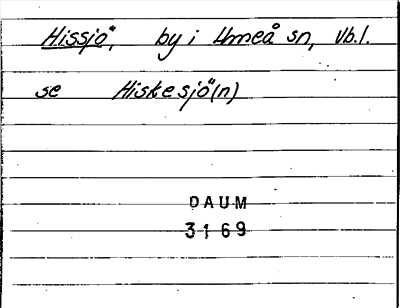 Hissjö, by i Umeå sn, Vb.l.
se Hiskesjö(n)
DAUM
3169